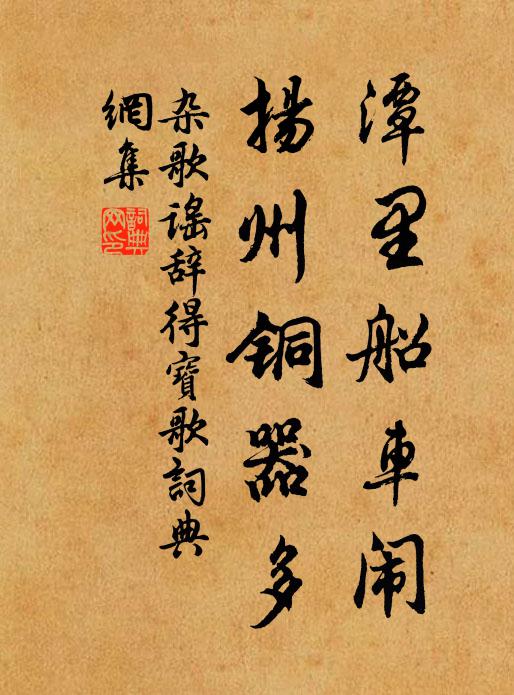 潭里船車闹
揚州铜器多
杂歌谣辞得寶歌詞典
網集
詞典网印